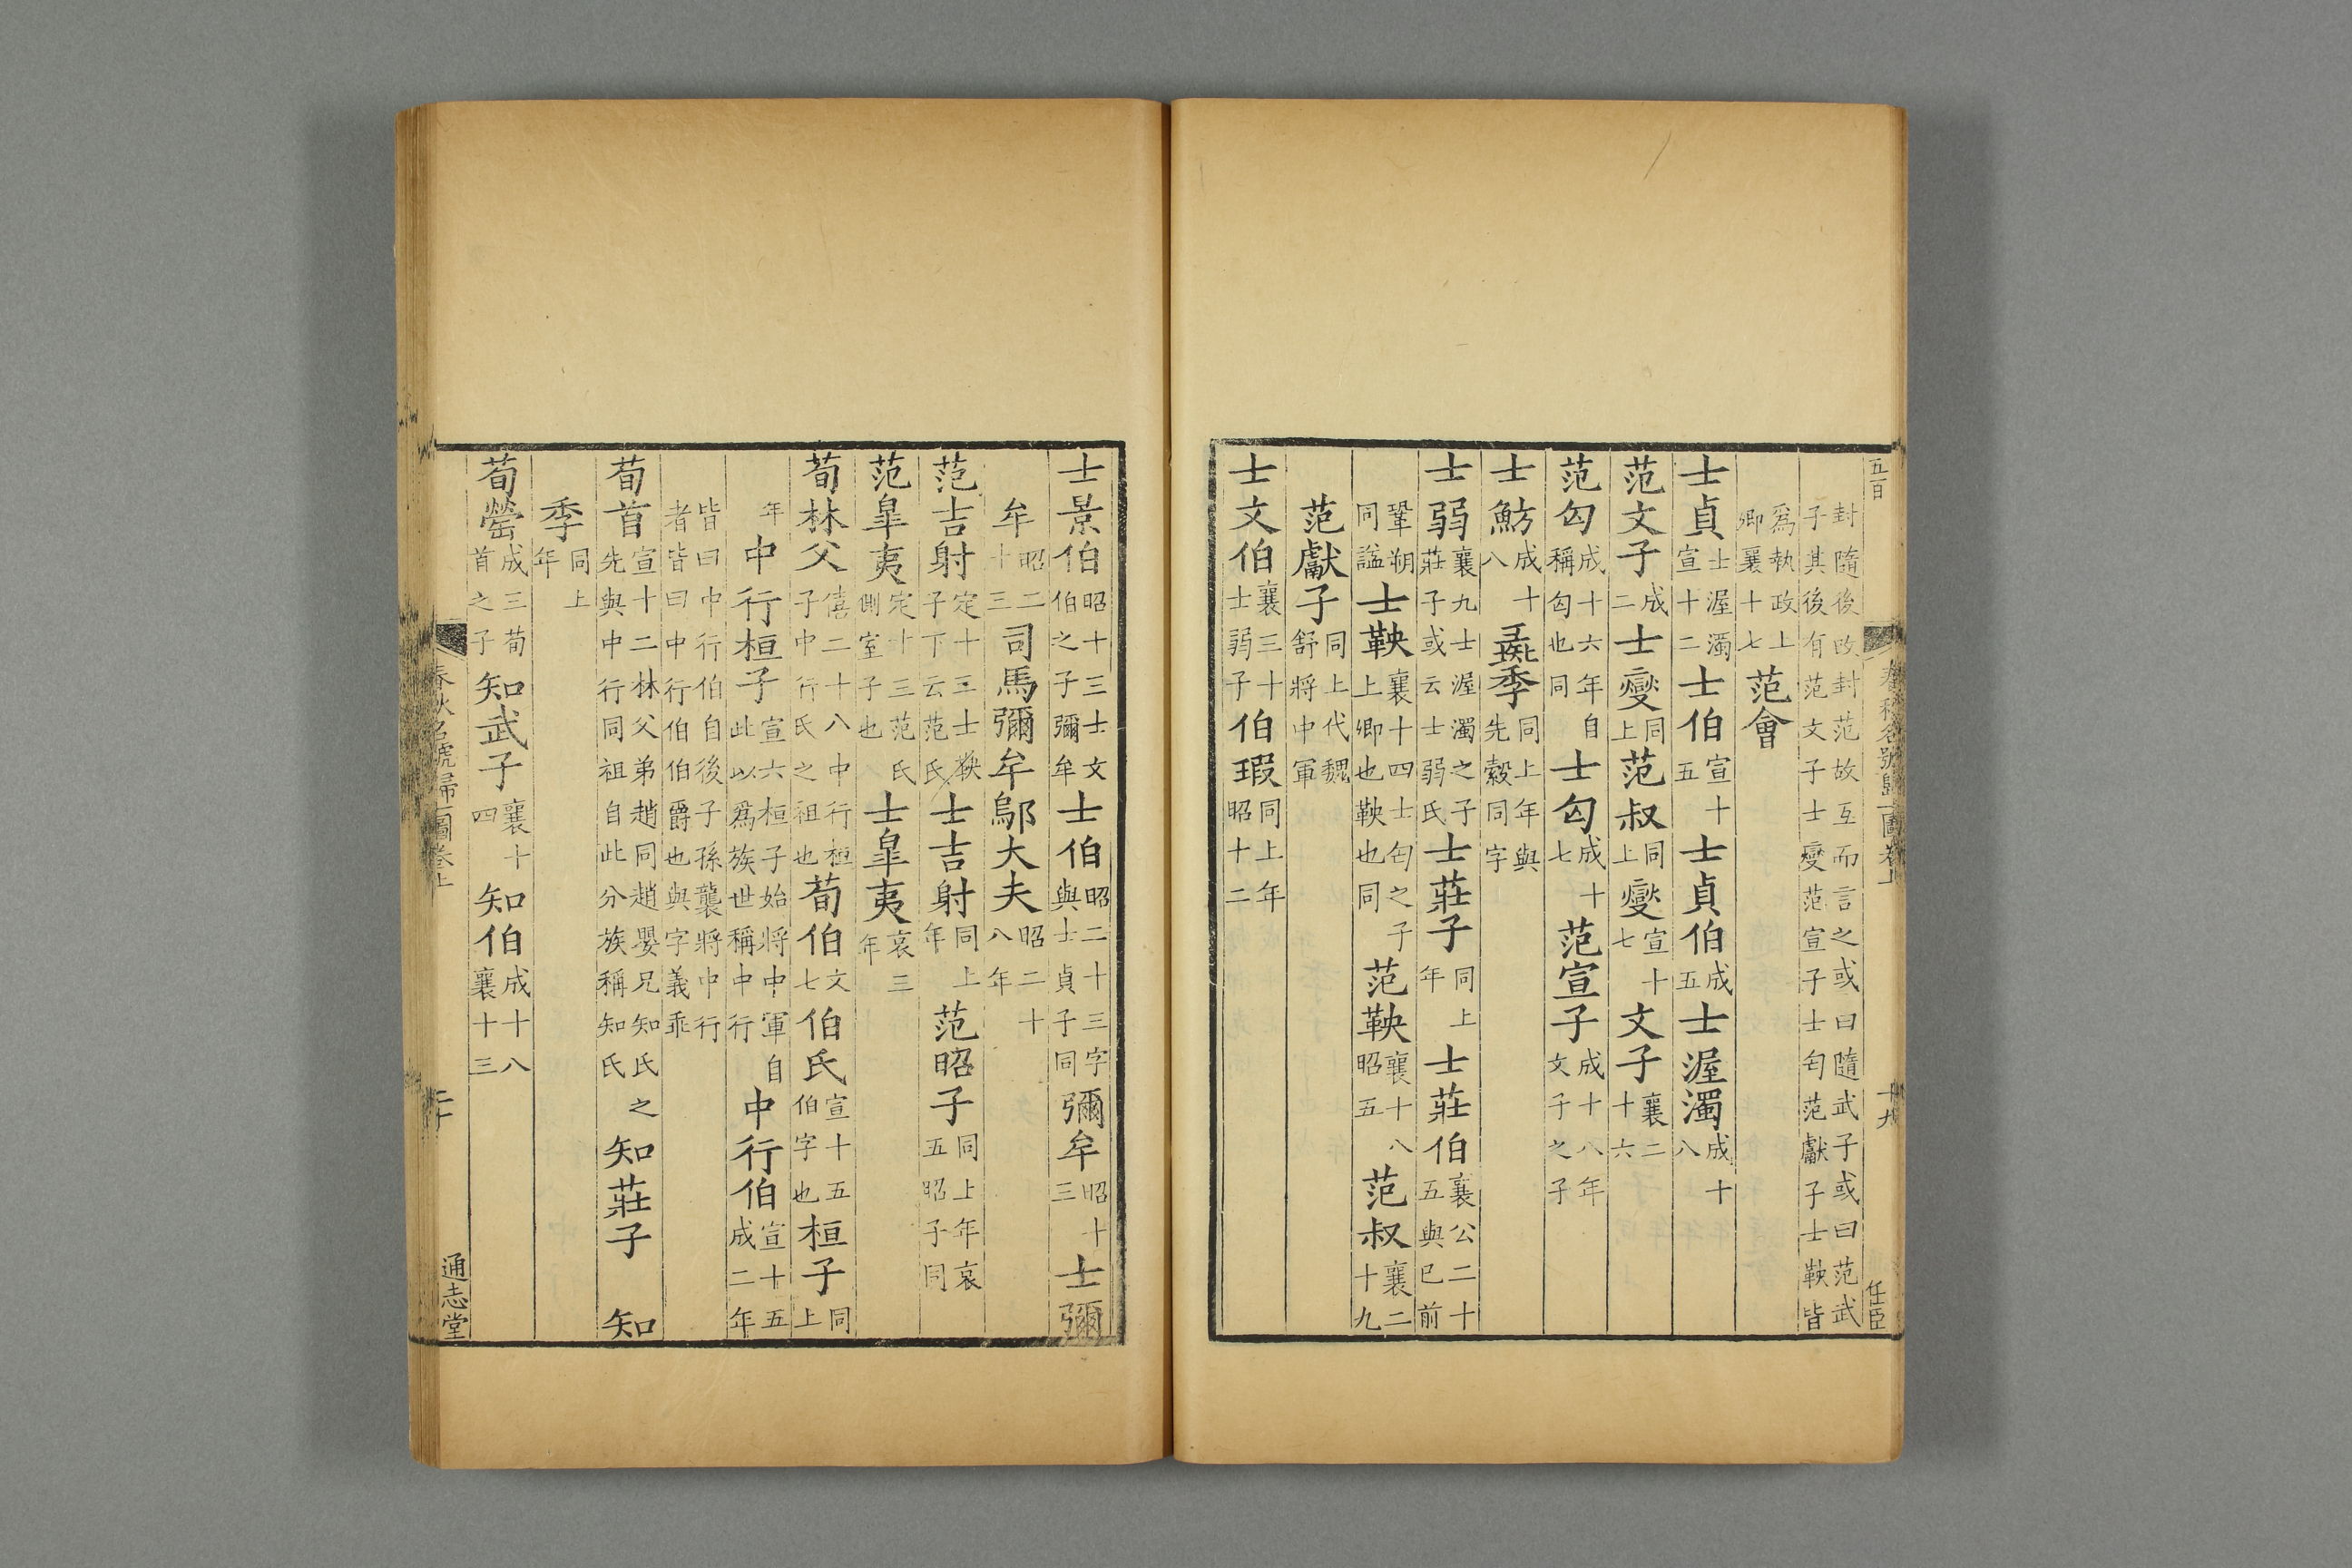 五百
封隨後改封范故互而言之或曰隨武子或曰范武
子其後有范文子士燮范宣子士匄范獻子士鞅皆
爲執政上
卿襄十七
范會
士貞士渥濁宣十二士伯宣十五士貞伯成五士渥濁成十八
范文子成二士燮同上范叔同上燮宣十七文子襄二十六
范匄成十六年自稱匄也同士匄成十七范宣子成十八年文子之子
士魴成十八彘季同上年與先縠同字
士弱襄九士渥濁之子莊子或云士弱氏士莊子同上年士莊伯襄公二十五與已前
鞏朔同諡士鞅襄十四士匄之子上卿也鞅也同范鞅襄十八昭五范叔襄二十九
范獻子同上代魏舒將中軍
士文伯襄三十士弱子伯瑕同上年昭十二
春秋名號歸一圖卷上
十九
任臣
士景伯昭十三士文伯之子彌牟士伯昭二十三字與士貞子同彌牟昭十三士彌
牟昭二十三司馬彌牟鄔大夫昭二十八年
范吉射定十三士鞅子下云范氏士吉射同上年范昭子同上年哀五昭子同
范臯夷定十三范氏側室子也士臯夷哀三年
荀林父僖二十八中行桓子中行氏之祖也荀伯文七伯氏宣十五伯字也桓子同上
年中行桓子宣六桓子始將中軍自此以爲族世稱中行中行伯宣十五成二年
皆曰中行伯自後子孫襲將中行
者皆曰中行伯伯爵也與字義乖
荀首宣十二林父弟趙同趙嬰兄知氏之先與中行同祖自此分族稱知氏知莊子 知
季同上年
荀罃成三荀首之子知武子襄十四知伯成十八襄十三
春秋名號歸一圖卷上
二十
通志堂